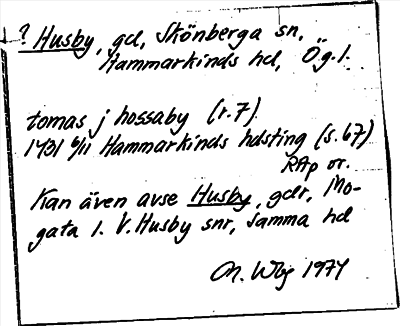 ? Husby, gd, Skönberga sn,
Hammarkinds hd, Ög.l.
tomas j hossaby (r.7)
1431 6/11 Hammarkinds hdsting (s.67)
RAp or.
Kan även avse Husby, gdr, Mo-
gata l. V. Husby snr, samma hd
M. Wbg 1974